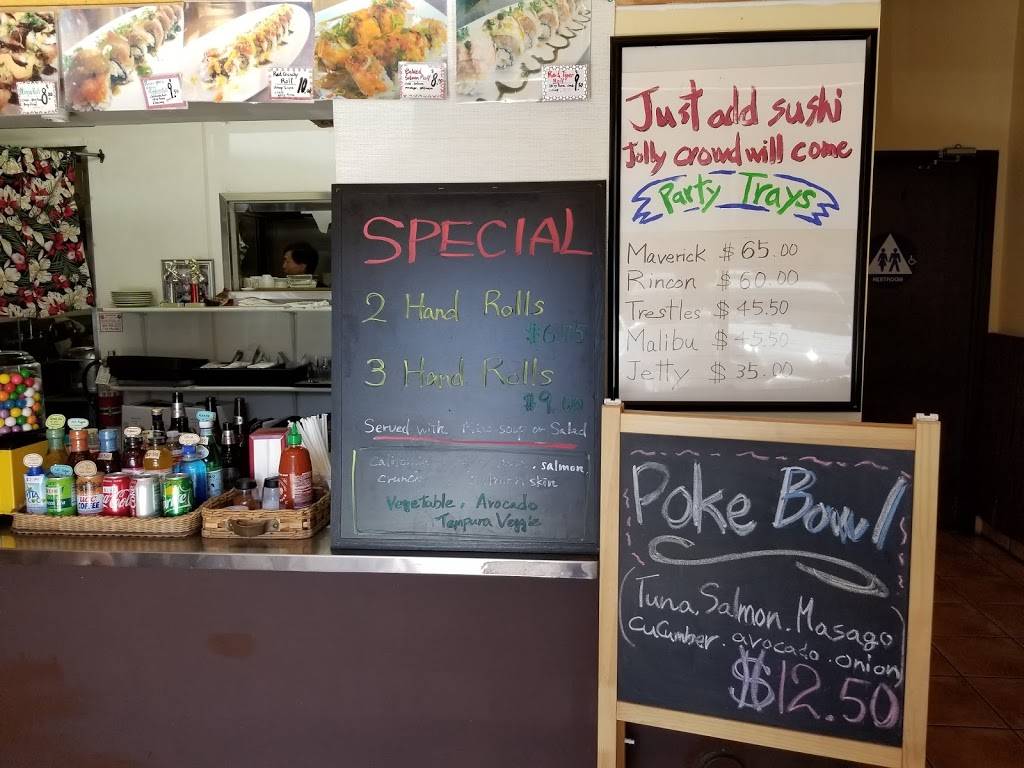 Roll 8.
Roll 10.
Baked
Salmon Roll 8.
Rock Tiger
Roll
Just add sushi
Jolly crowd will come
Party Trays
Maverick $65.00
Rincon $60.00
Trestles $45.50
Malibu $45.50
Jetty $35.00
RESTROOM
SPECIAL
2 Hand Rolls
3 Hand Rolls
Served with Miso soup or Salad
salmon,
skin
Vegetable, Avocado
Tempura Veggie
Coca-Cola
COFFEE
Poke Bowl
(Tuna, Salmon, Masago
cucumber, avocado, onion)
$12.50